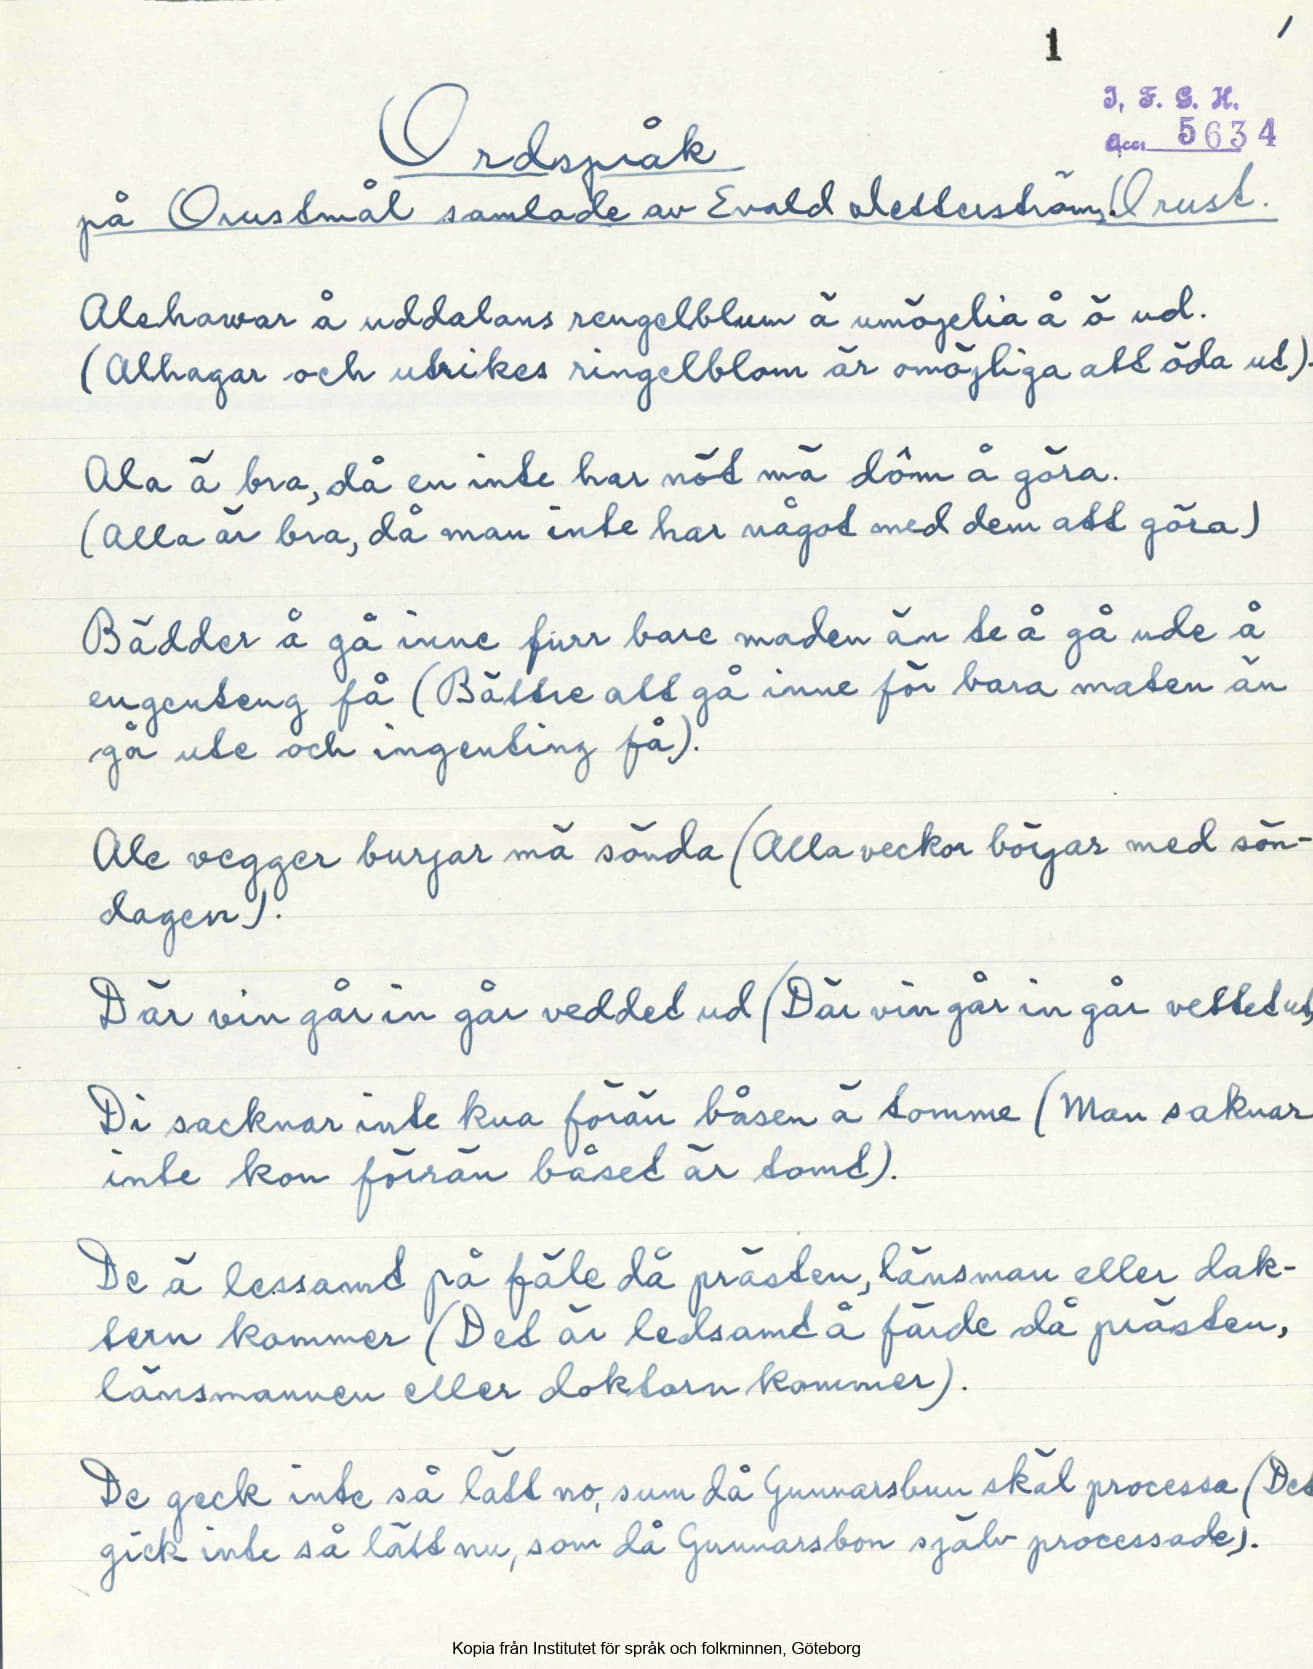 1
1
I. F. G. H.
Acc. 5634
Ordspråk
på Orustmål samlade av Evald Zetterström, Orust.
Alehawar å uddalans rengelblum ä umöjelia å ö ud.
(Alhagar och utrikes ringelblom är omöjliga att öda ut).
Ala ä bra, då en inte har nöt mä dôm å göra.
(Alla är bra, då man inte har något med dem att göra)
Bädder å gå inne fürr bare maden än te å gå ude å
engenteng få (Bättre att gå inne för bara maten än
gå ute och ingenting få).
Ale vegger burjar mä sönda (Alla veckor börjar med sön-
dagen).
Där vin går in går veddet ud (Där vin går in går vettet ut)
Di sacknar inte kua förän båsen ä tomme (Man saknar
inte kon förrän båset är tomt).
De ä lessamt på fäle då prästen, länsman eller dak-
tern kommer (Det är ledsamt å färde då prästen,
länsmannen eller doktorn kommer).
De geck inte så lätt no, sum då Gunnarsbun skäl processa (Det
gick inte så lätt nu, som då Gunnarsbon själv processade).
Kopia från Institutet för språk och folkminnen, Göteborg